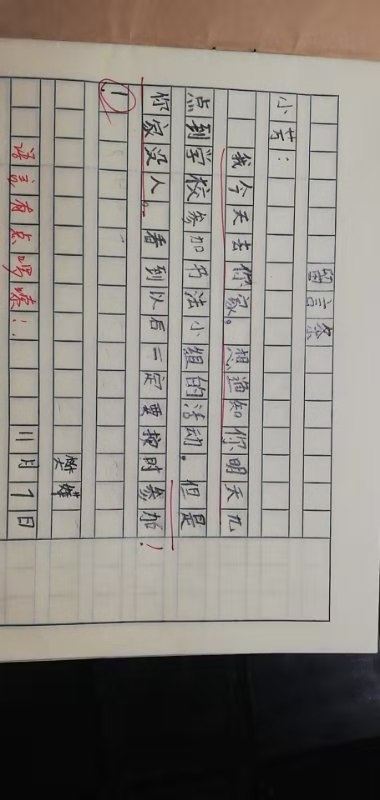 留言条
小芳：
我今天去你家。想通知你明天九
点到学校参加书法小组的活动。但是
你家没人。看到以后一定要按时参加！
！
樊烨
11月7日
语言有点啰嗦！